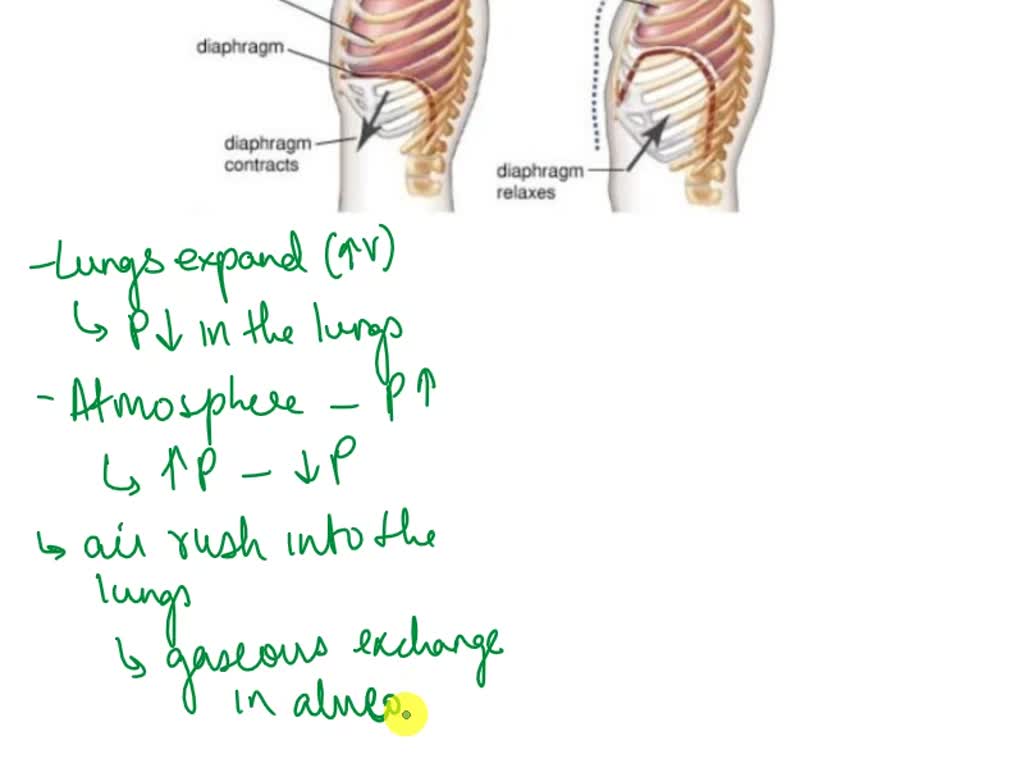 diaphragm
diaphragm
contracts
diaphragm
relaxes
- Lungs expand (↑V)
↳ P↓ in the lungs
- Atmosphere - P↑
↳ ↑P - ↓P
↳ air rush into the
lungs
↳ gaseous exchange
in